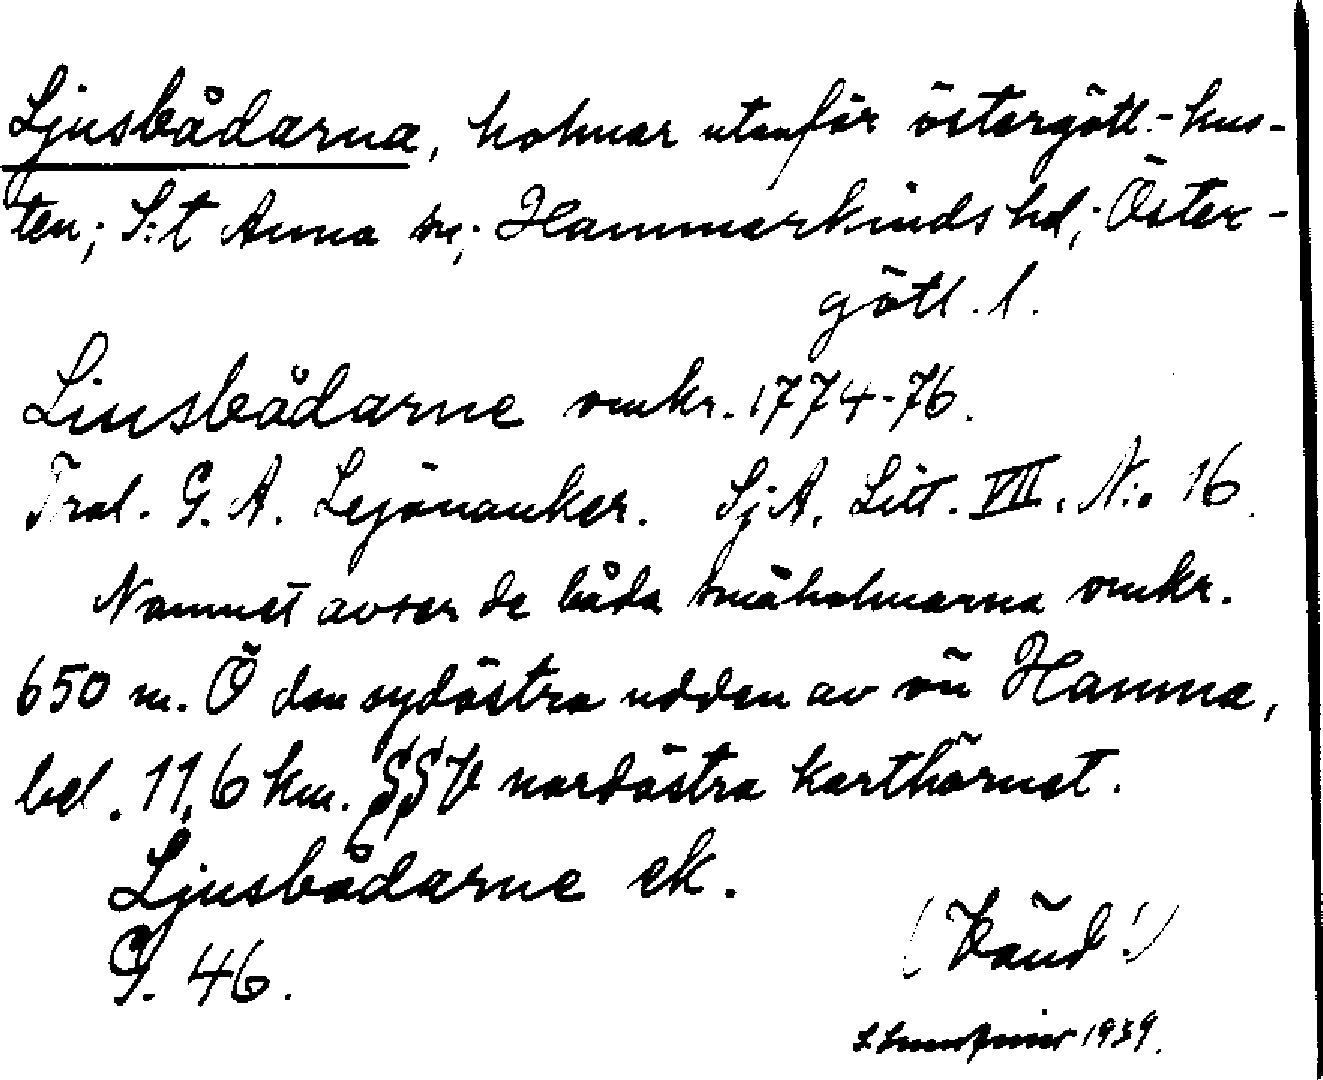 Ljusbådarna, holmar utanför östergötl.-kus-
ten; S:t Anna sn; Hammarkinds hd; Öster-
götl. l.
Liusbådarne omkr. 1774-76.
Trol. G. A. Lejonanker. SjA. Litt. VIII. N:o 16.
Namnet avser de båda småholmarna omkr.
650 m. Ö den sydöstra udden av ön Hamna,
bel. 11,6 km. SSV nordöstra karthörnet.
Ljusbådarne ek.
G. 46.
(Vänd!)
1939.